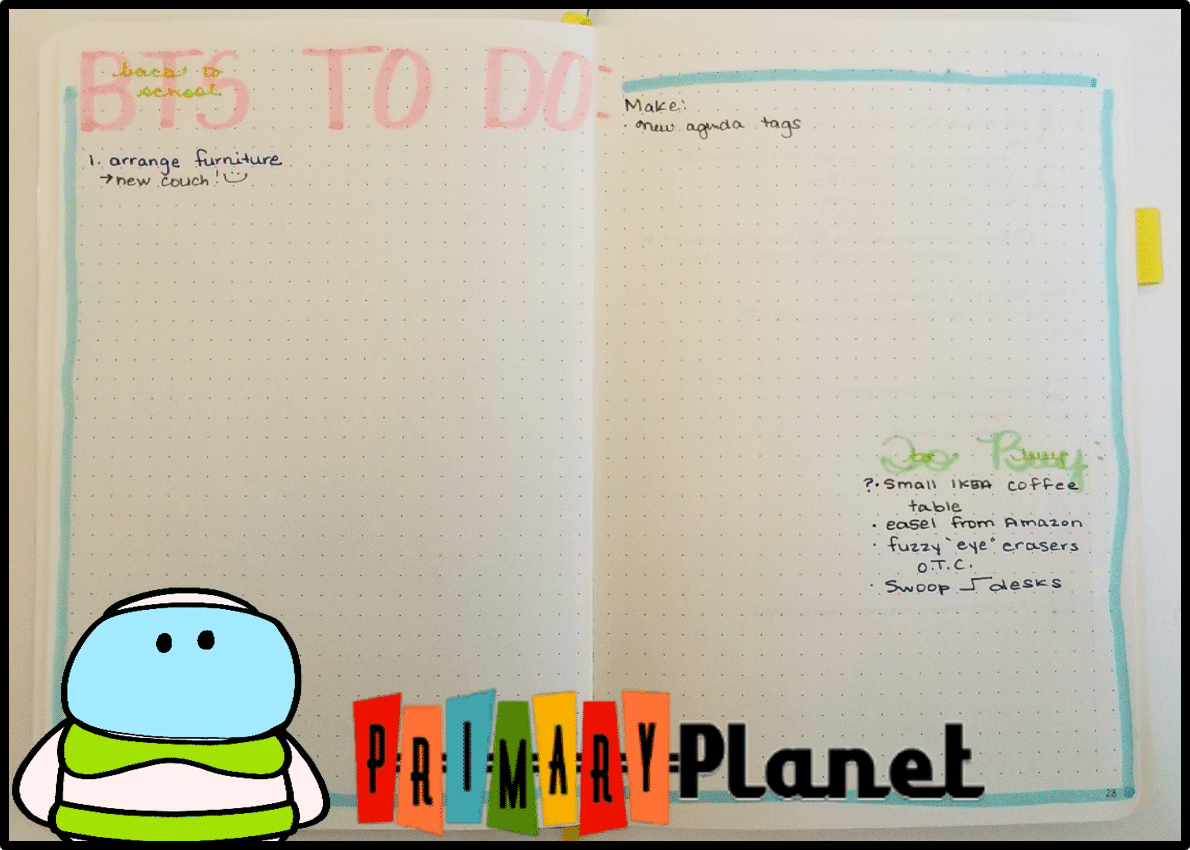 BTS TO DO:
back to
school
1. arrange furniture
→new couch! :)
Make:
· new agenda tags
To Buy:
?· Small IKEA coffee
table
· easel from Amazon
· fuzzy "eye" erasers
O.T.C.
· Swoop desks
PRIMARY Planet
28